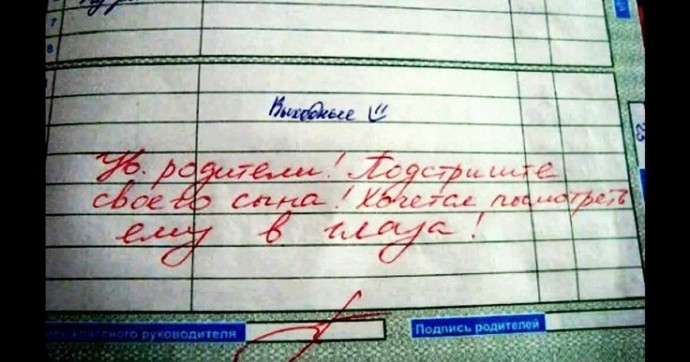 7
8
Выходные
Ув. родители! Подстригите
своего сына! Хочется посмотреть
ему в глаза!
классного руководителя
Подпись родителей